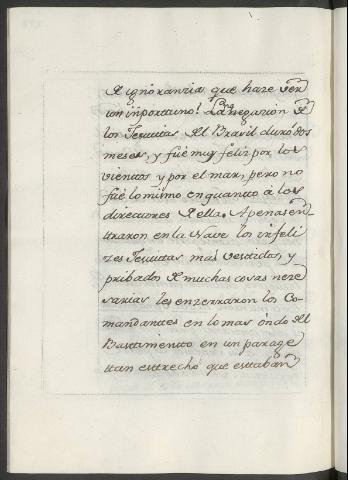 de ignoranzia que haze ser
un inportuno! La nabegazion de
los Jesuitas del Brasil duró dos
meses, y fué muy feliz por los
vientos y por el mar, pero no
fué lo mismo en quanto á los
directores de ella. Apenas en_
traron en la Nave los infeli
zes Jesuitas mal vestidos, y
pribados de muchas cosas neze
sarias les enzerraron los Co-
mandantes en lo mas óndo del
Bastimento en un parage
tan estrecho que estaban